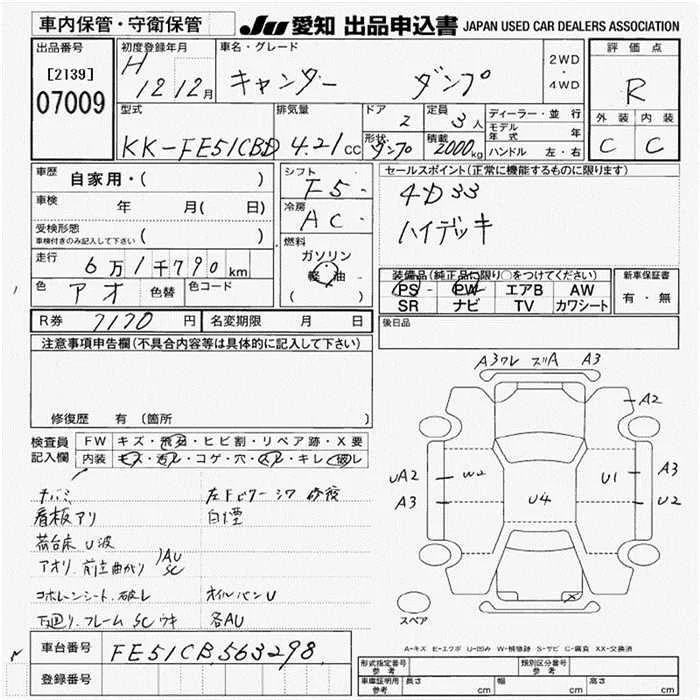 車内保管・守衛保管
JU 愛知 出品申込書 JAPAN USED CAR DEALERS ASSOCIATION
出品番号
[2139]
07009
初度登録年月
H 12 12月
車名・グレード
キャンター ダンプ
2WD・4WD
評価点
R
外装 内装
C C
型式
KK-FE51CBD
排気量
4.21cc
ドア
2
定員
3人
形状
ダンプ
積載
2000kg
ディーラー・並行
モデル年式 年
ハンドル 左・右
車歴 自家用・( )
車検 年 月( 日)
受検形態
車検付きのみ記入して下さい ( )
走行 6万1千790km
色 アオ 色替 色コード
シフト
F5-
冷房
AC-
燃料
ガソリン
軽油
( )
セールスポイント(正常に機能するものに限ります)
4D33
ハイデッキ
装備品(純正品に限り○をつけてください)
PS PW エアB AW
SR ナビ TV カワシート
新車保証書
有・無
R券 7170円 名変期限 月 日
後日品
注意事項申告欄(不具合内容等は具体的に記入して下さい)
修復歴 有(箇所
検査員記入欄
FW キズ・飛石・ヒビ割・リペア跡・X要
内装 キズ・汚レ・コゲ・穴・スレ・キレ・破レ
左Fピラーシワ 修復
看板アリ 白煙
荷台床 U波
アオリ、前立曲がり AU SC
シート、破レ オイルパンU
下廻り、フレーム SC ウキ 各AU
A3ワレ ズリA A3
A2
UA2 W2 U1 A3
A3 U4 U2
X
スペア
A-キズ E-エクボ U-凹み W-補修跡 S-サビ C-腐食 XX-交換済
車台番号 FE51CB563298
登録番号
形式指定番号 参考
類別区分番号 参考
車庫証明用 参考 長さ cm 幅 cm 高さ cm